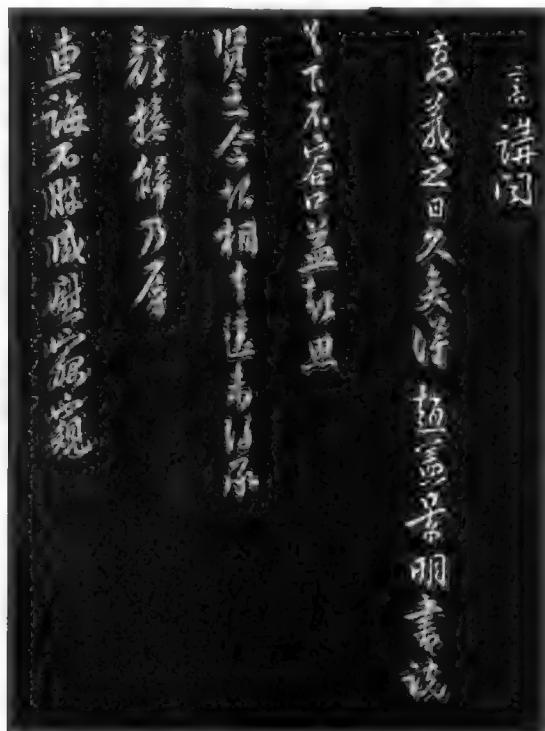 言講閱
高義之日久矣得趙憲景明書說
足下不容口益起思
賢之念相去遠未得承
顏接辭乃辱
惠誨不勝感慰竊窺